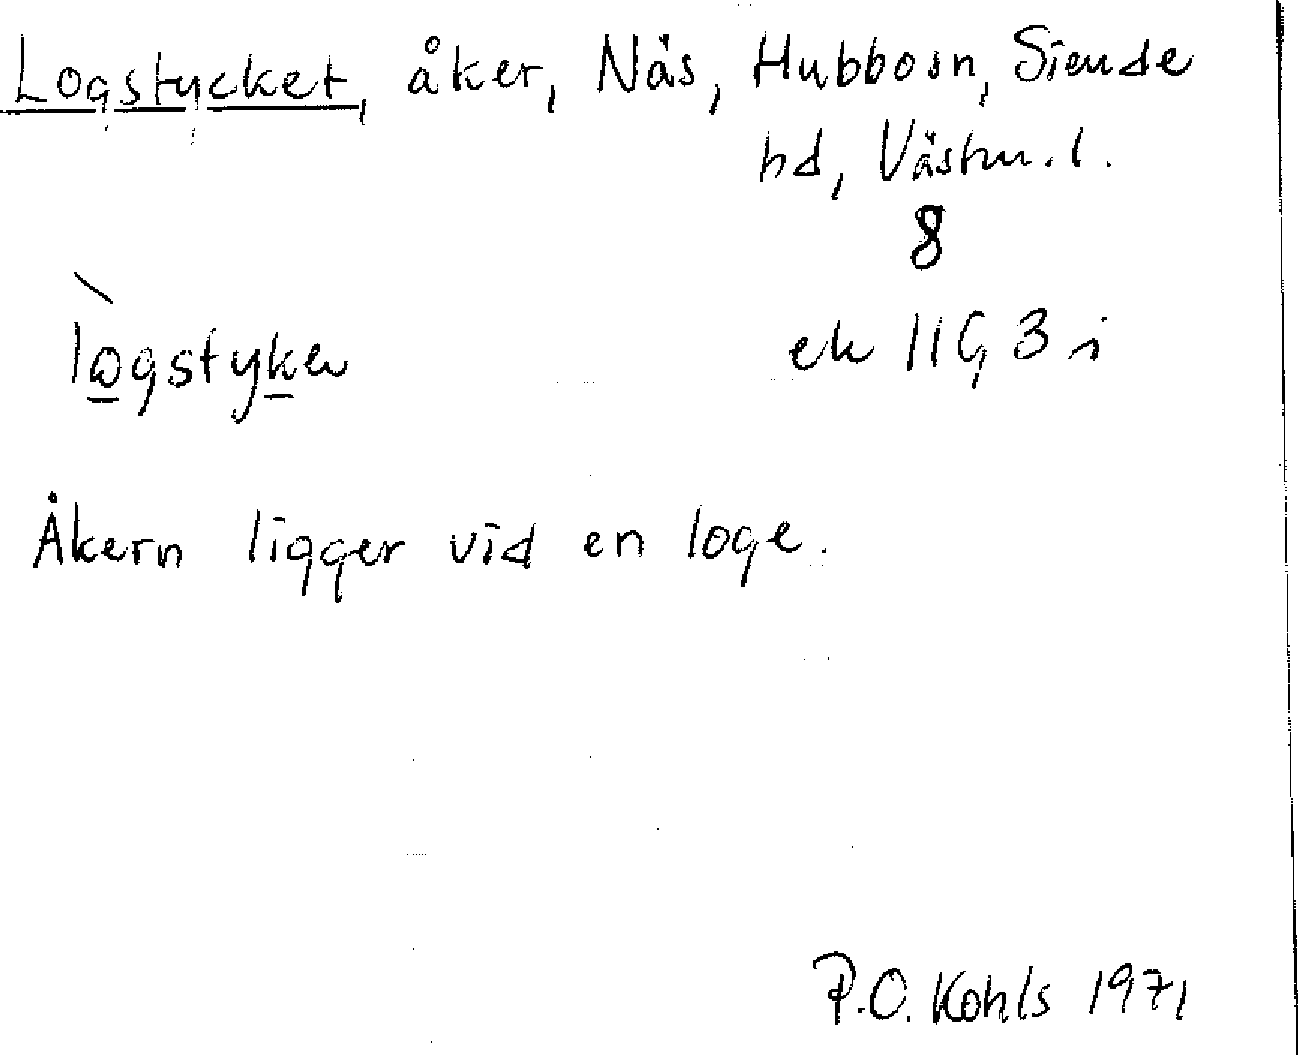 Logstycket, åker, Näs, Hubbosn, Siende
hd, Västm. l.
8
logstyke
ek 11G 3 i
Åkern ligger vid en loge.
P.O. Kohls 1971